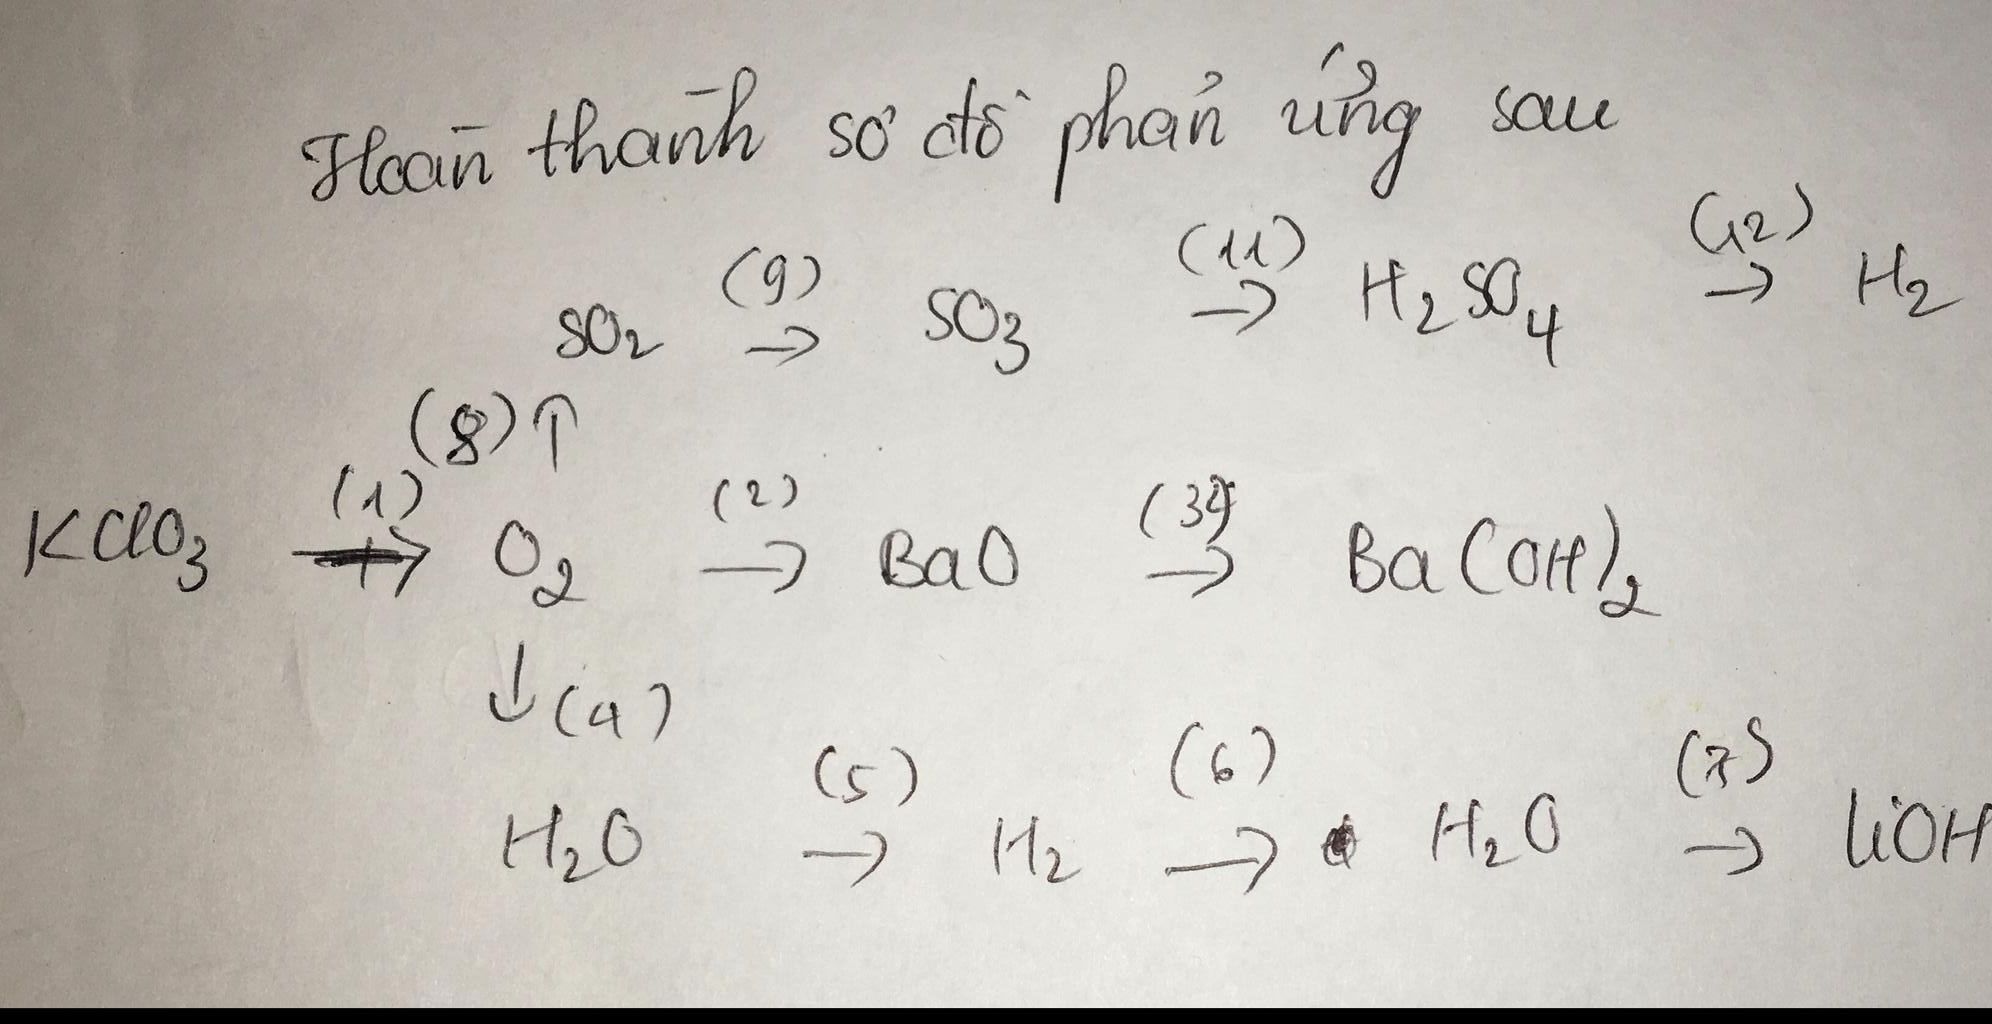 Hoàn thành sơ đồ phản ứng sau
SO₂ (9) → SO₃ (11) → H₂SO₄ (12) → H₂
(8) ↑
KClO₃ (1) → O₂ (2) → BaO (3) → Ba(OH)₂
↓ (4)
H₂O (5) → H₂ (6) → H₂O (7) → LiOH